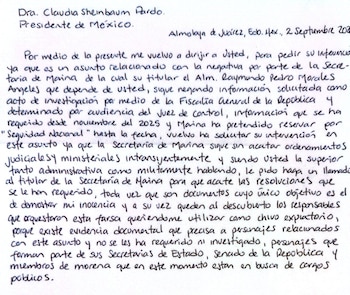 Dra. Claudia Sheinbaum Pardo.
Presidente de México.
Almoloya de Juárez, Edo. Mex., 2 Septiembre 202
Por medio de la presente me vuelvo a dirigir a Usted, para pedir su intervenc
ya que es un asunto relacionado con la negativa por parte de la Secre-
taría de Marina de la cual su titular el Alm. Raymundo Pedro Morales
Angeles que depende de usted, sigue negando información solicitada como
acto de investigación por medio de la Fiscalía General de la República y
determinado por audiencia del Juez de Control, información que se ha
requerido desde noviembre del 2025 y Marina ha pretendido reservar por
"Seguridad Nacional" hasta la fecha, vuelvo ha solicitar su intervención en
este asunto ya que la Secretaría de Marina sigue sin acatar ordenamientos
judiciales y ministeriales intensijentemente y siendo Usted la superior
tanto administrativa como militarmente hablando, le pido haga un llamado
al titular de la Secretaría de Marina para que acate las resoluciones que
se le han requerido, toda vez que son documentos cuyo único objetivo es el
de demostrar mi inocencia y a su vez quedan al descubierto los responsables
que orquestaron esta farsa queriendome utilizar como chivo expiatorio,
porque existe evidencia documental que precisa a personajes relacionados
con este asunto y no se les ha requerido ni investigado, personajes que
forman parte de sus Secretarías de Estado, Senado de la República y
miembros de morena que en este momento estan en busca de cargos
públicos.